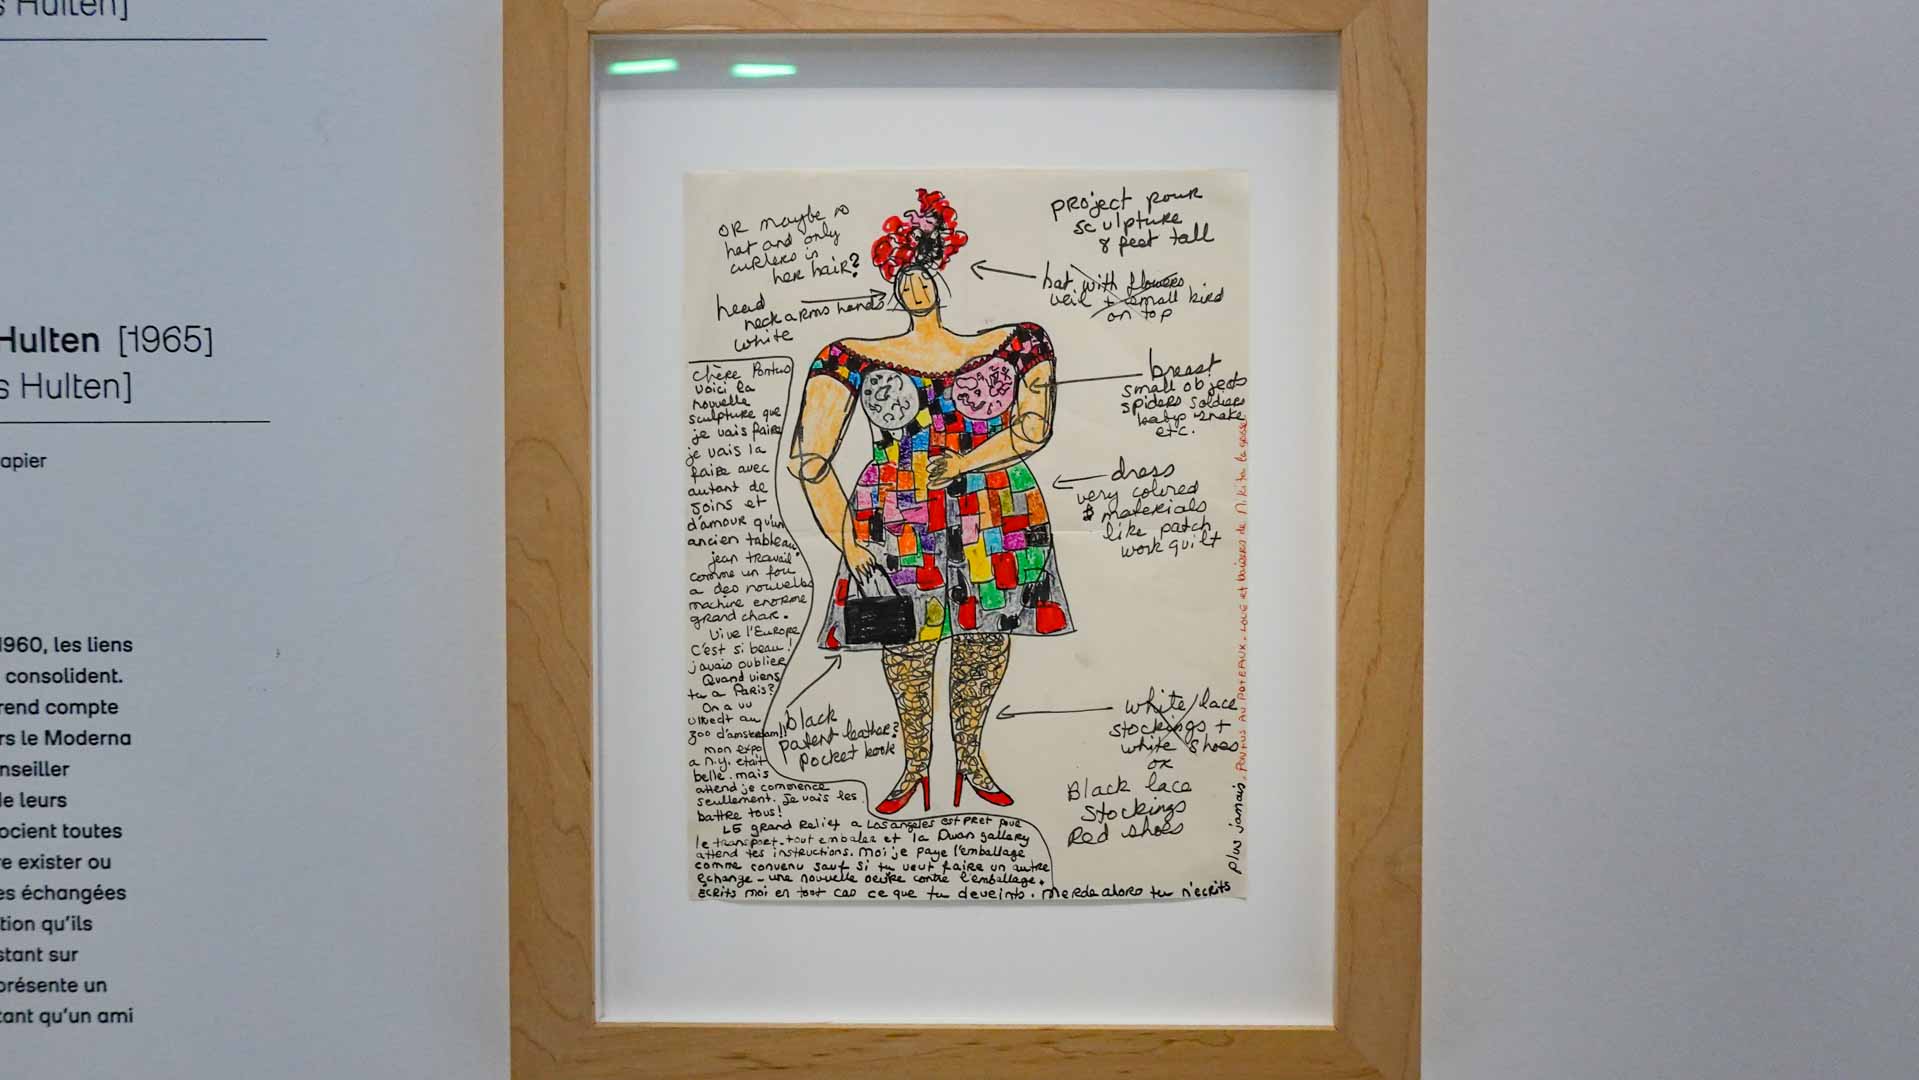 s Hulten]
Hulten [1965]
s Hulten]
apier
1960, les liens
consolident.
rend compte
rs le Moderna
nseiller
de leurs
ocient toutes
re exister ou
es échangées
tion qu'ils
stant sur
présente un
tant qu'un ami
OR maybe no
hat and only
curlers in
her hair?
project pour
sculpture
8 feet tall
hat with flowers
veil + small bird
on top
head
neck arms hands
white
breast
small objects
spiders soldiers
baby snake
etc.
dress
very colored
materials
like patch
work quilt
white lace
stockings +
white shoes
or
Black lace
stockings
Red shoes
black
patent leather?
pocket book
Chère Pontus
voici la
nouvelle
sculpture que
je vais faire
je vais la
faire avec
autant de
soins et
d'amour qu'un
ancien tableau.
jean travail
comme un fou
a des nouvelles
machine enorme
grand char.
Vive l'Europe
C'est si beau!
j'avais oublier
Quand viens
tu a Paris?
On a vu
au
zoo d'amsterdam!!
mon expo
a n.y. etait
belle. mais
attend je commence
seulement. Je vais les
battre tous!
LE grand Relief a Los angeles est pret pour
le transport. tout embaler et la Dwan gallery
attend tes instructions. Moi je paye l'emballage
comme convenu sauf si tu veut faire un autre
échange - une nouvelle oeuvre contre l'emballage.
Ecrits moi en tout cas ce que tu deveints. Merde alors tu n'ecrits
plus jamais. PONTUS AU POTEAUX. LOVE et baisers de Nikita la gosse